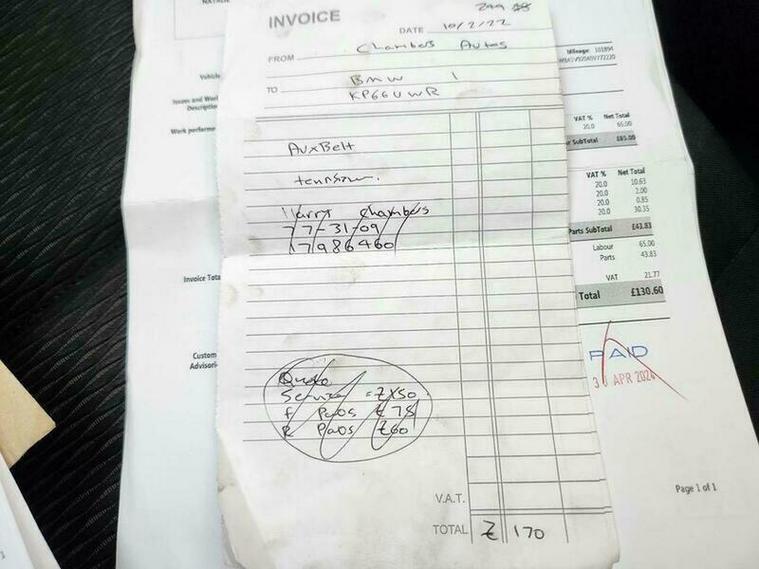 INVOICE
DATE 10/2/22
FROM Chambers Autos
TO BMW 1
KP66UWR
AuxBelt
Harry Chambers
77-31-09
17986460
Quote
Service = £150
F Pads £75
R Pads £60
V.A.T.
TOTAL £ 170
Vehicle
Issues and Work
Description
Work performe
Invoice Tota
Custom
Advisori
Mileage: 101894
VAT % Net Total
20.0 65.00
SubTotal £65.00
VAT % Net Total
20.0 10.63
20.0 2.00
20.0 0.85
20.0 30.35
Parts SubTotal £43.83
Labour 65.00
Parts 43.83
VAT 21.77
Total £130.60
PAID
APR 2024
Page 1 of 1